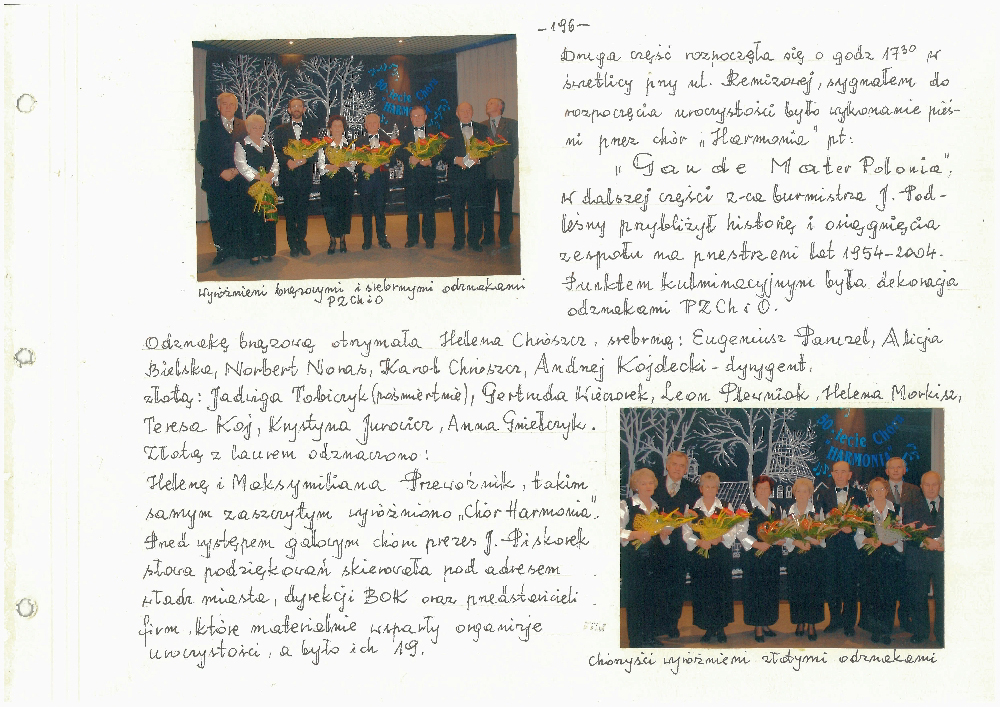 -196-
50-lecie Chóru
HARMONIA
Wyróżnieni brązowymi i srebrnymi odznakami
PZChiO
Druga część rozpoczęła się o godz 17³⁰ w
świetlicy przy ul. Remizowej, sygnałem do
rozpoczęcia uroczystości było wykonanie pieś-
ni przez chór „Harmonia" pt:
„Gaude Mater Polonia",
W dalszej części z-ca burmistrza J. Pod-
leśny przybliżył historię i osiągnięcia
zespołu na przestrzeni lat 1954-2004.
Punktem kulminacyjnym była dekoracja
odznakami PZCh i O.
Odznakę brązową otrzymała Helena Chrószcz, srebrną: Eugeniusz Panczel, Alicja
Bielska, Norbert Noras, Karol Chroszcz, Andrzej Kojdecki - dyrygent,
złotą: Jadwiga Tobiczyk (pośmiertnie), Gertruda Wieczorek, Leon Plewniak, Helena Morkisz,
Teresa Koj, Krystyna Jurowicz, Anna Gniełczyk.
Złotą z laurem odznaczono:
Helenę i Maksymiliana Przewoźnik, takim
samym zaszczytym wyróżniono „Chór Harmonia".
Przed występem galowym chóru prezes J. Piskorek
słowa podziękowań skierowała pod adresem
władz miasta, dyrekcji BOK oraz przedstawicieli
firm, które materialnie wsparły organizję
uroczystości, a było ich 19.
50-lecie Chóru
HARMONIA
Chórzyści wyróżnieni złotymi odznakami